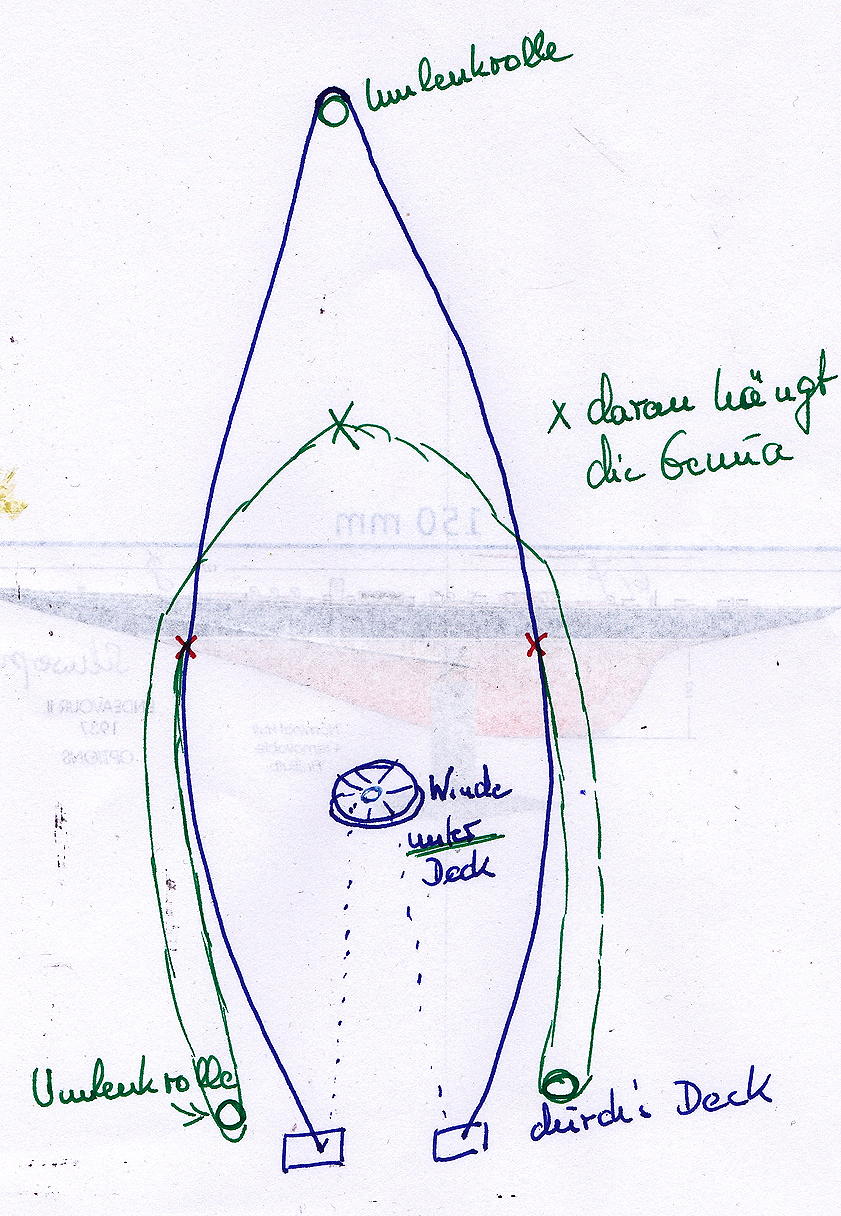 Umlenkrolle
x daran hängt
die Genua
150 mm
ENDEAVOUR II
1937
OPTIONS
Winde
unter
Deck
Umlenkrolle
durch's Deck